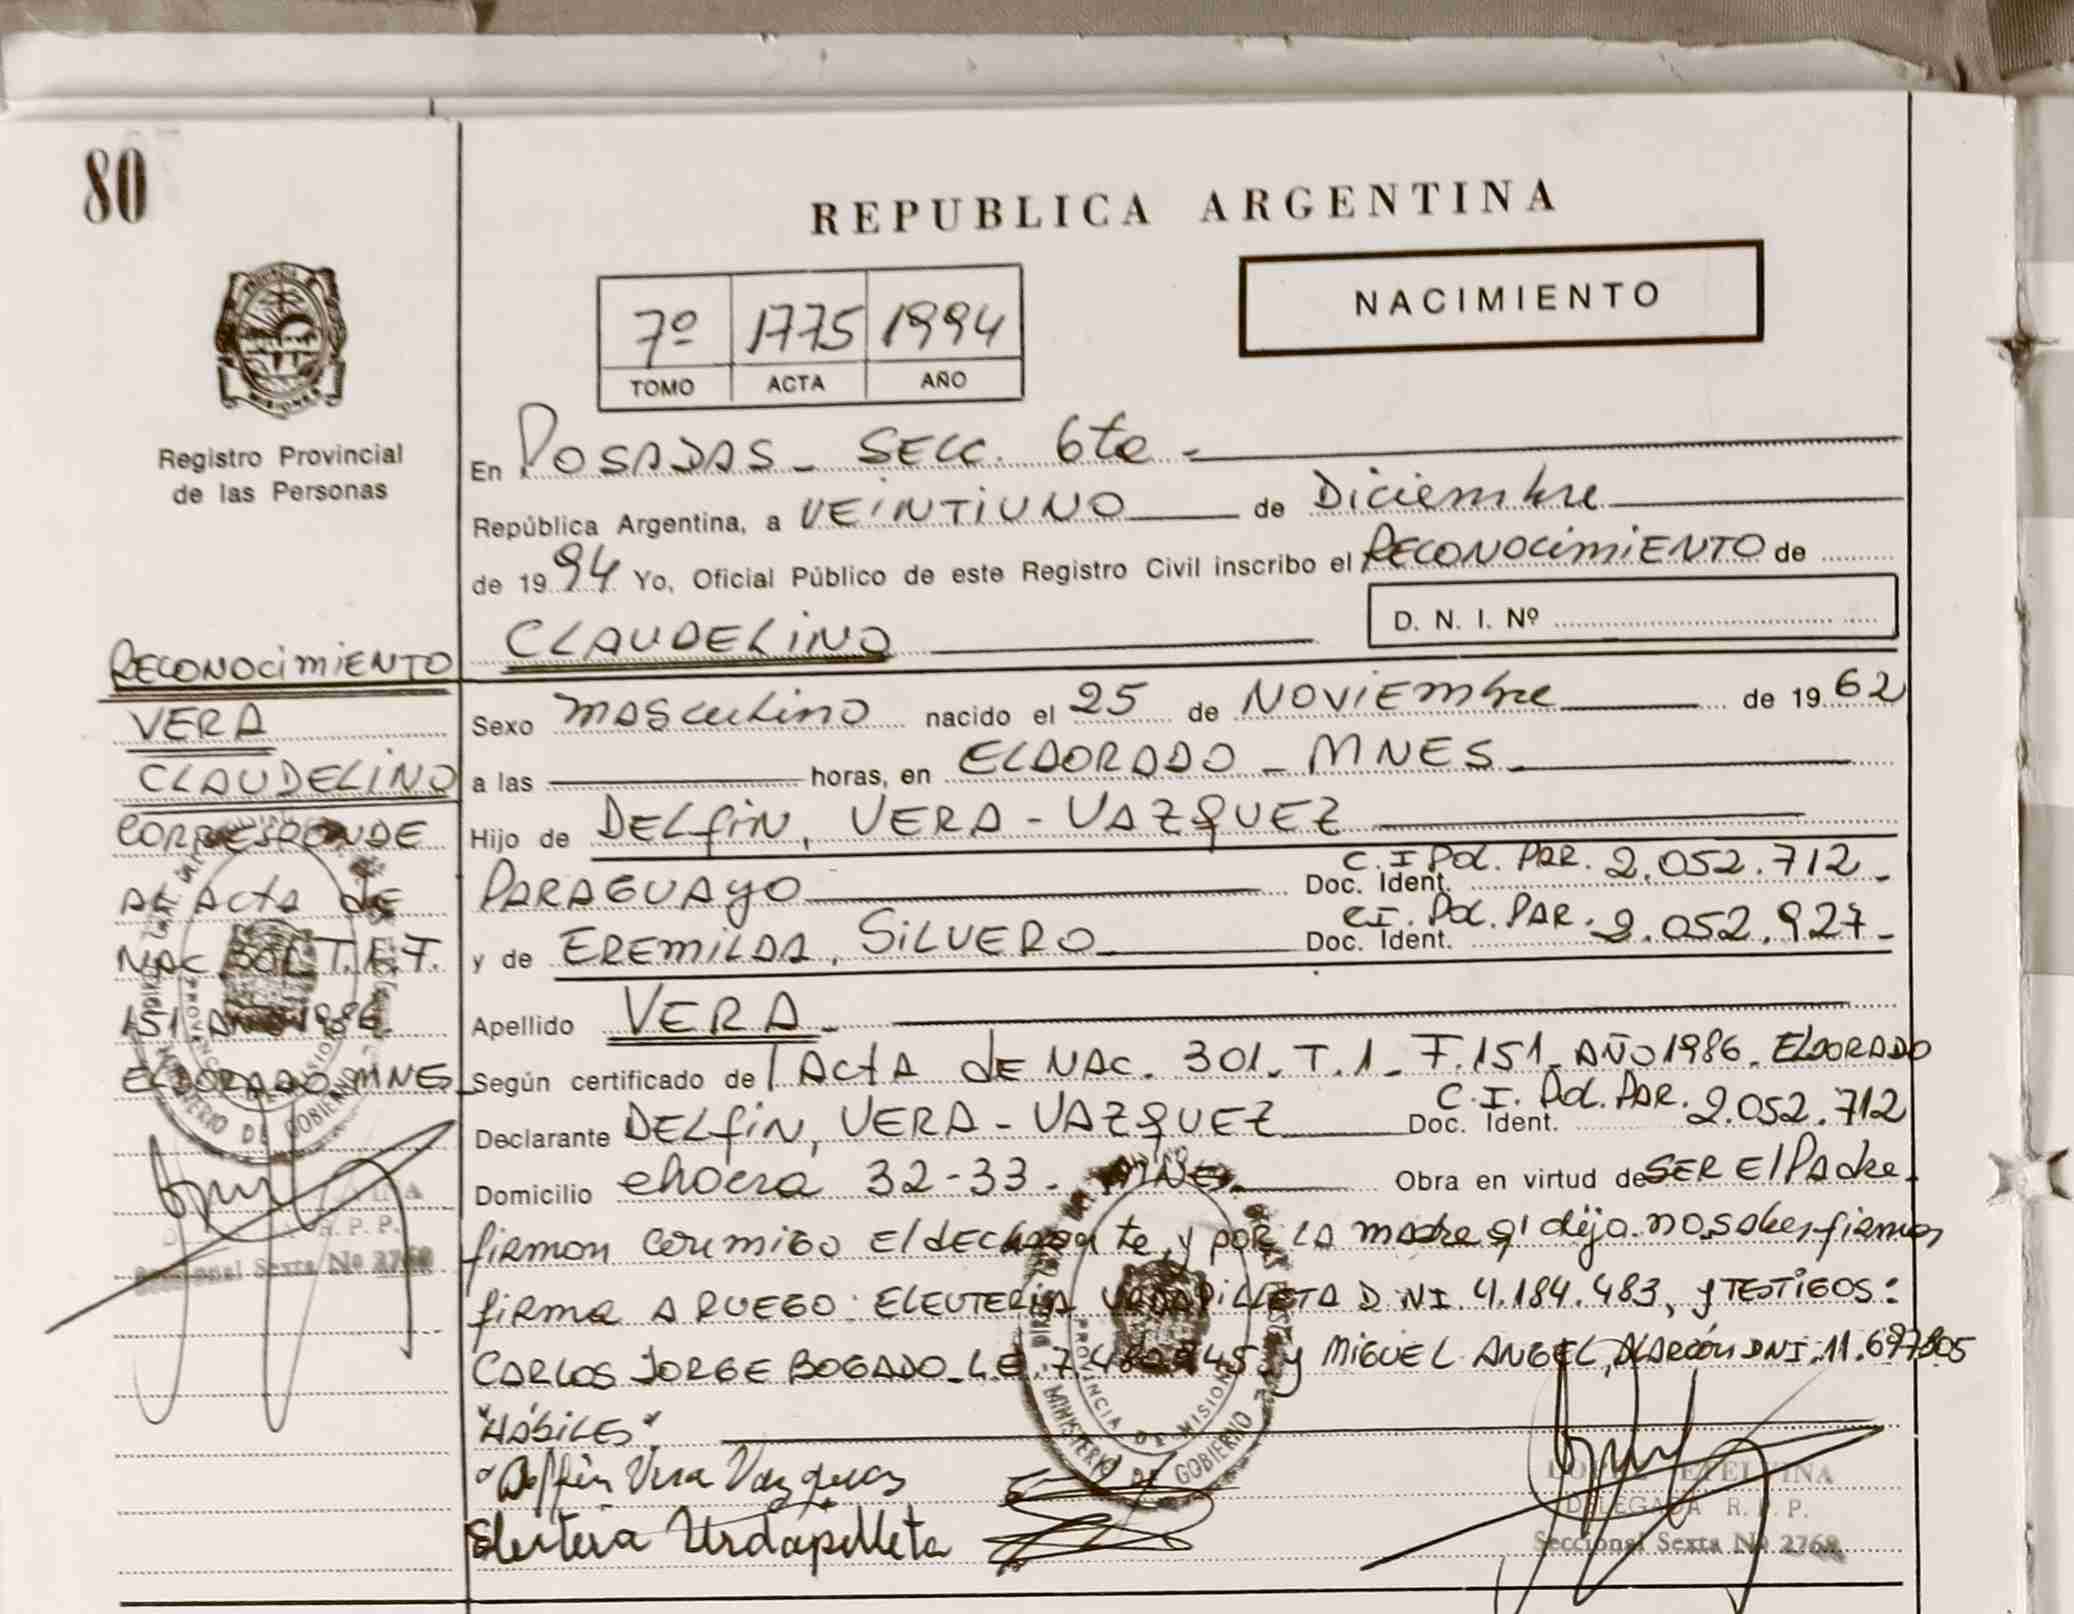 80
REPUBLICA ARGENTINA
NACIMIENTO
7º 1775 1994
TOMO ACTA AÑO
MISIONES
Registro Provincial
de las Personas
En POSADAS - SECC. 6ta -
República Argentina, a VEINTIUNO de Diciembre
de 1994 Yo, Oficial Público de este Registro Civil inscribo el RECONOCIMIENTO de
D. N. I. Nº
CLAUDELINO
Sexo masculino nacido el 25 de NOVIEmbre de 1962
a las horas, en ELDORADO - MNES
Hijo de DELfiN, VERA - VAZQUEZ
PARAGUAyO Doc. Ident. C. I. Pol. PAR. 2.052.712.
y de EREMILDA, SILVERO Doc. Ident. C.I. Pol. PAR. 2.052.927-
Apellido VERA
Según certificado de ACTA de NAC. 301. T. 1 - F. 151 - AÑO 1986. ELDORADO
Declarante DELfiN, VERA - VAZQUEZ Doc. Ident. C. I. Pol. PAR. 2.052.712
Domicilio 32-33. MNES. Obra en virtud de SER El Padre.
firman conmigo El declarante, y por LA madre q' dijo no saber firmar
firma A RUEGO: ELEUTERIA URDAPILLETA D NI. 4.184.483, y TESTIGOS:
CARLOS JORGE BOGADO L.E. y MIGUEL ANGEL, ALARCÓN DNI. 11.697805
"HÁBILES"
Delfin Vera Vazquez
Eleuteria Urdapilleta
ETELVINA
DELEGADA R. P. P.
Seccional Sexta Nº 2768
RECONOCIMIENTO
VERA
CLAUDELINO
CORRESPONDE
AL Acta de
NAC. 301 T.1 F.
151 AÑO 1986
ELDORADO MNES
R. P. P.
Seccional Sexta Nº 2768
PROVINCIA DE MISIONES
MINISTERIO DE GOBIERNO
PROVINCIA DE MISIONES
MINISTERIO DE GOBIERNO